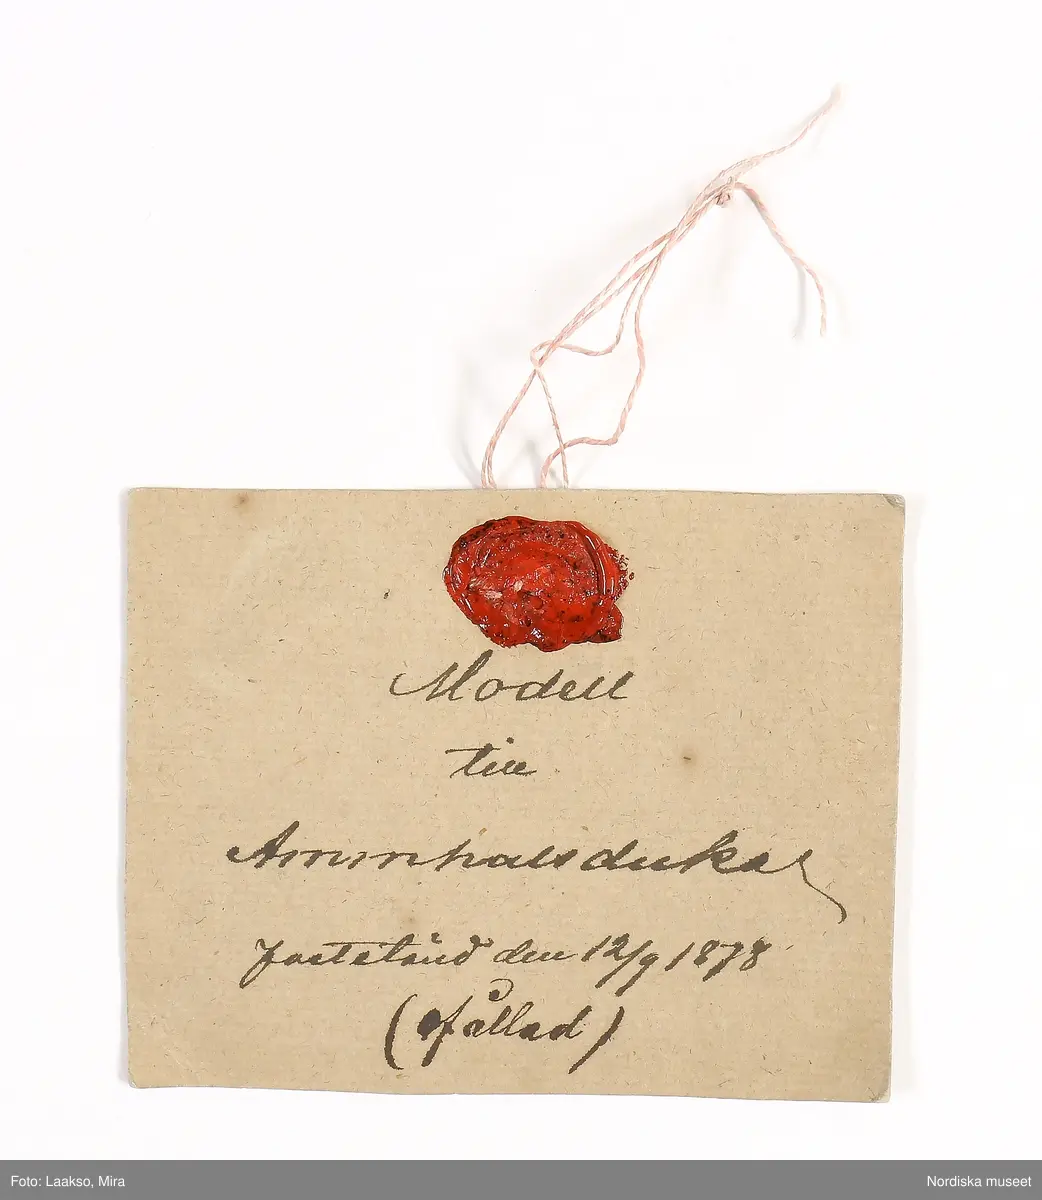 Modell
till
Ammhalsdukar
fastställd den 12/9 1878
(ofållad)
Foto: Laakso, Mira
Nordiska museet